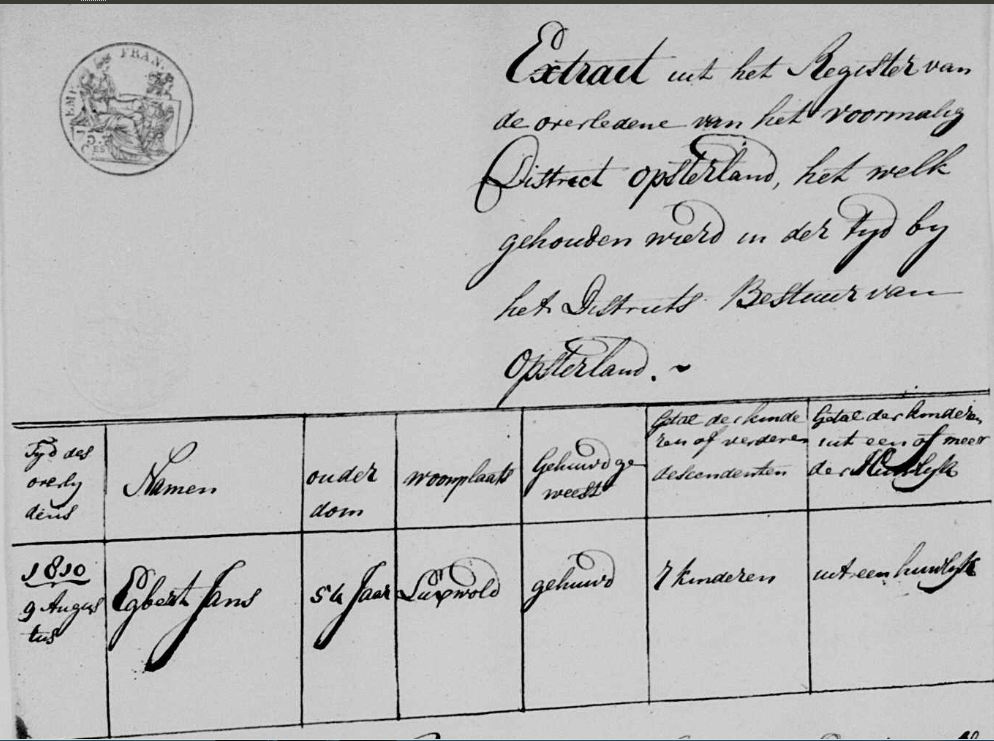 EMP. FRAN.
75 C.
Extract uit het Register van
de overledene van het voormalig
District Opsterland, het welk
gehouden wierd in der tyd by
het Districts Bestuur van
Opsterland. ~
Tyd des
overly
dens
Namen
ouder
dom
woonplaats
Gehuwd ge
weest
Getal der kinde
ren of verdere
descendenten
Getal der kinderen
uit een of meer
der Huwlyk
1810
9 Augus
tus
Egbert Jans
54 Jaar
Luxwold
gehuwd
7 kinderen
uit een huwlyk